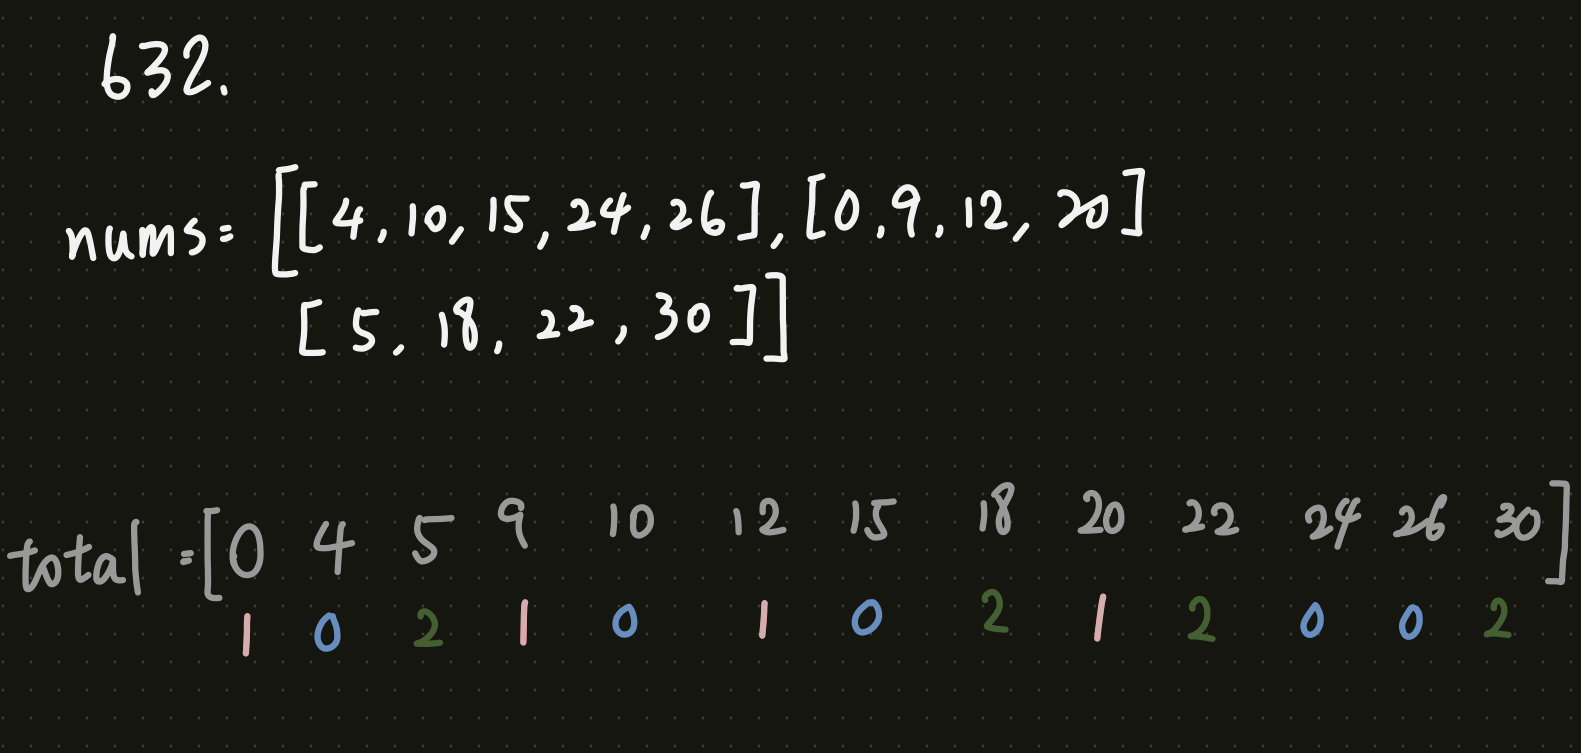 632.
nums= [[4,10,15,24,26],[0,9,12,20]
[5,18,22,30]]
total =[0 4 5 9 10 12 15 18 20 22 24 26 30]
1 0 2 1 0 1 0 2 1 2 0 0 2